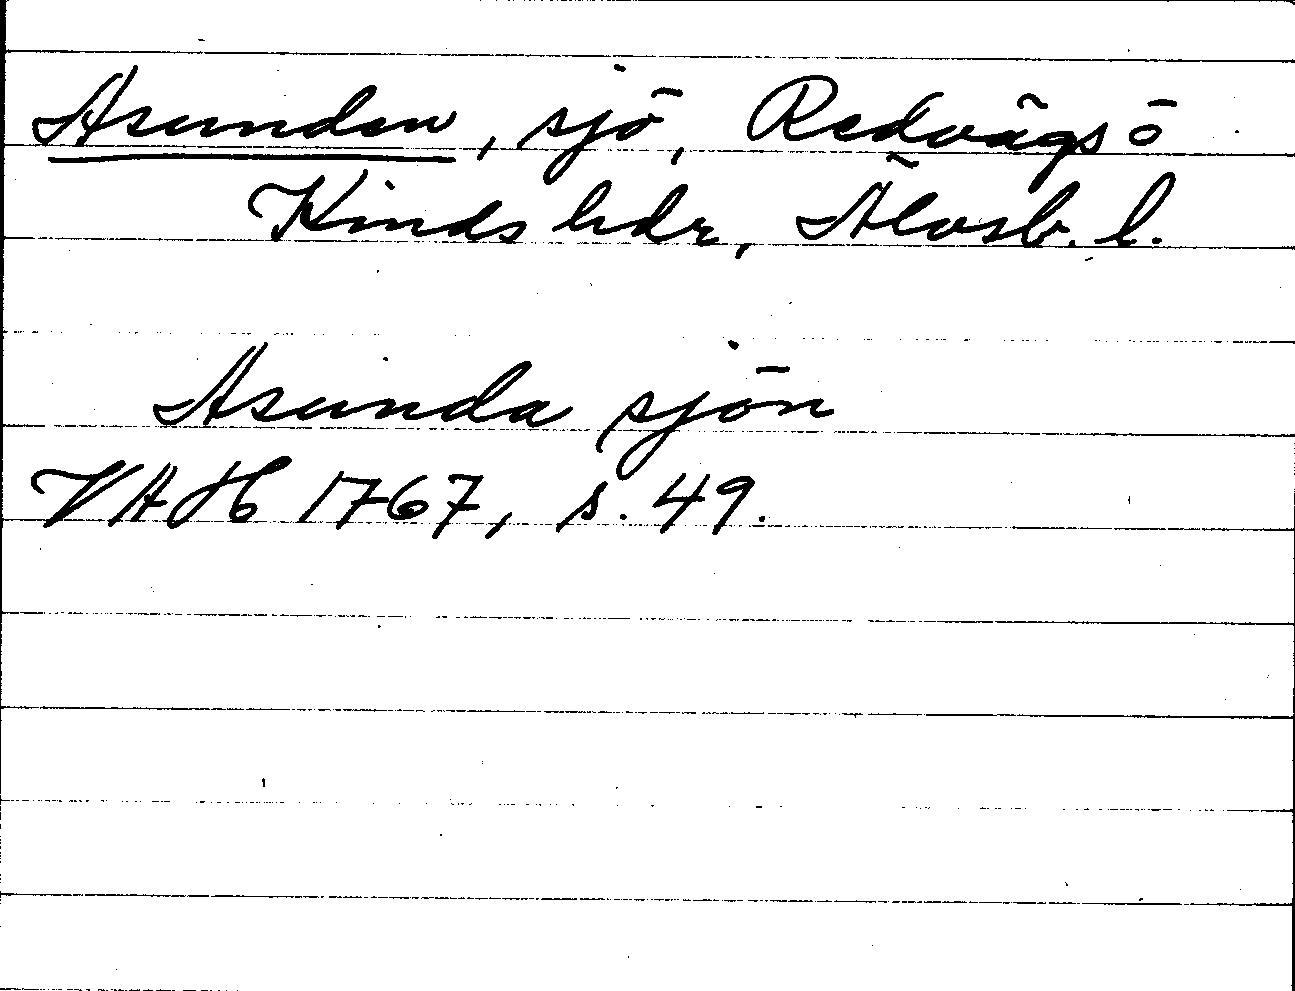 Asunden, sjö, Redvägs ö
Kinds hdr, Älvsb. l.
Asunda sjön
VAH 1767, s. 49.